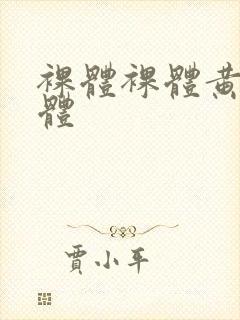 裸體裸體黄
體
賈小平